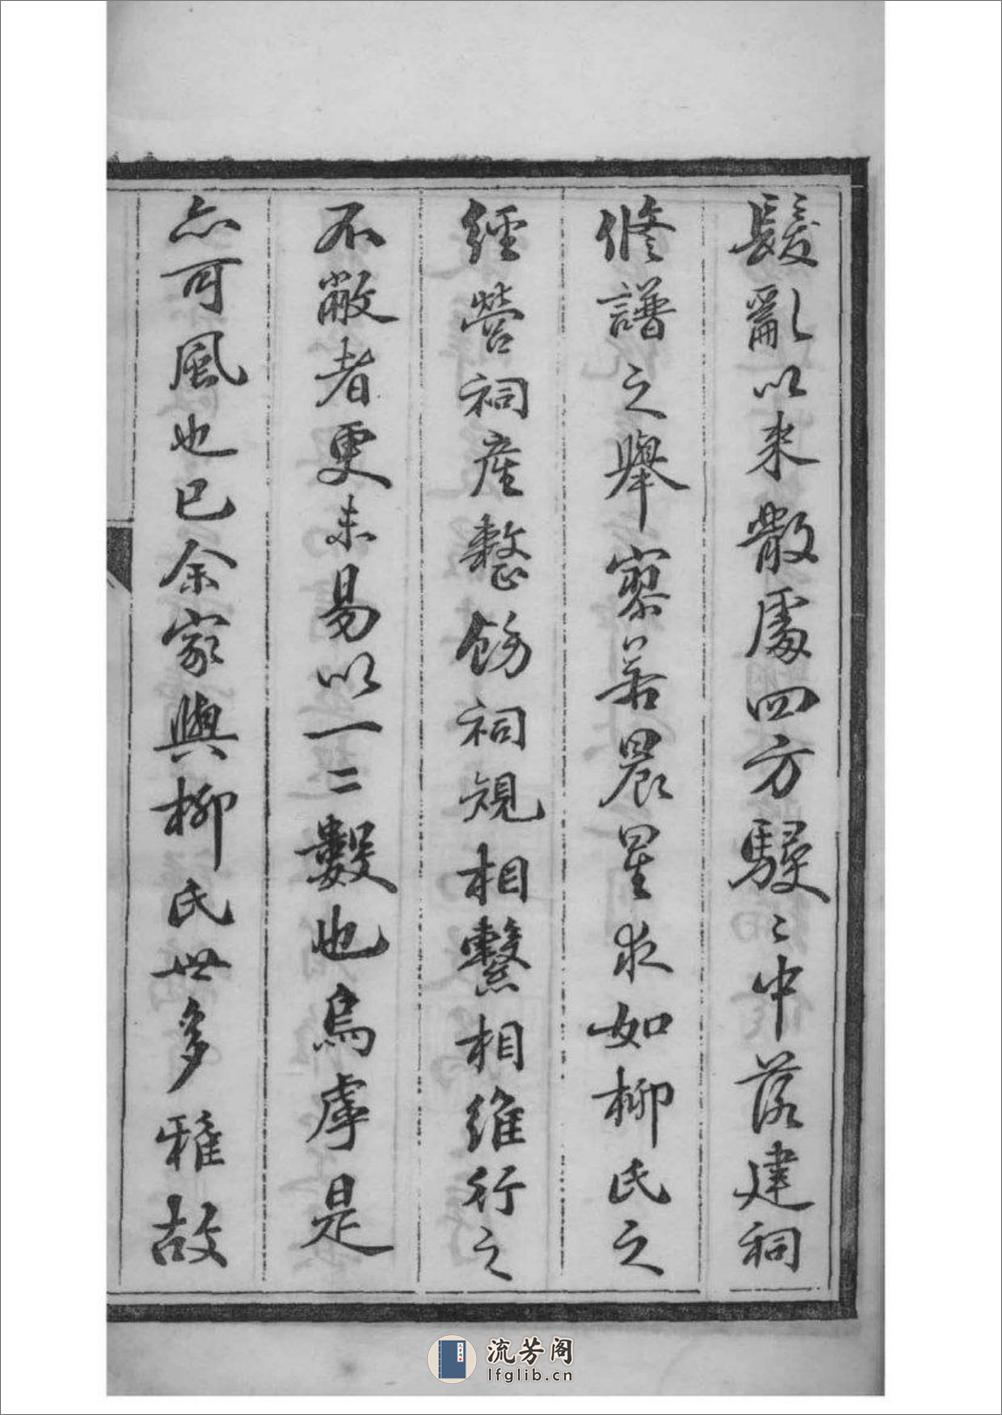 髮亂以来散處四方駸〻中落建祠
修譜之舉寥若晨星求如柳氏之
經營祠產整飭祠規相繫相維行之
不敝者更未易以一二數也烏虖是
亦可風也已余家與柳氏世多雅故
流芳阁
lfglib.cn